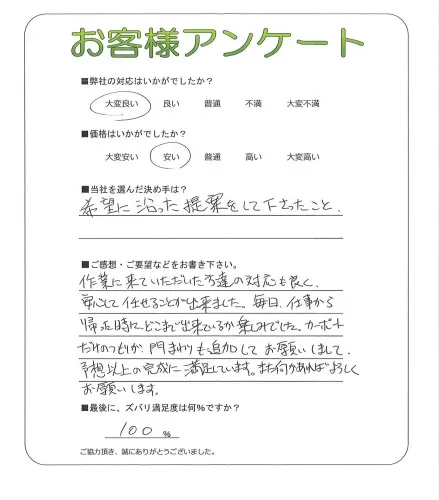 お客様アンケート
■弊社の対応はいかがでしたか？
大変良い 良い 普通 不満 大変不満
■価格はいかがでしたか？
大変安い 安い 普通 高い 大変高い
■当社を選んだ決め手は？
希望に沿った提案をして下さったこと、
■ご感想・ご要望などをお書き下さい。
作業に来ていただいた方達の対応も良く、
安心して任せることが出来ました。毎日、仕事から
帰った時にどこまで出来ているか楽しみでした。カーポート
だけのつもりが、門まわりも追加してお願いしまして、
予想以上の完成に満足しています。また何かあればよろしく
お願いします。
■最後に、ズバリ満足度は何％ですか？
100 %
ご協力頂き、誠にありがとうございました。